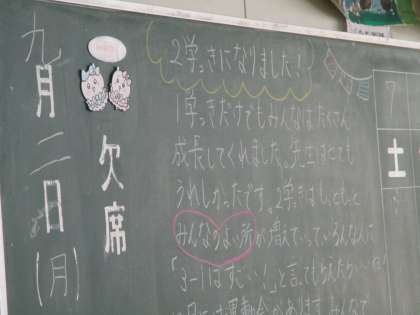 九月二日(月)
欠席
2学きになりました!
1学きだけでもみんなはたくさん
成長してくれました。先生はとても
うれしかったです。2学きはもっともっと
みんなのよい所が増えていって、いろんな人に
「3-1はすごい!」と言ってもらえたら
運動会があります。みんなで
7
土